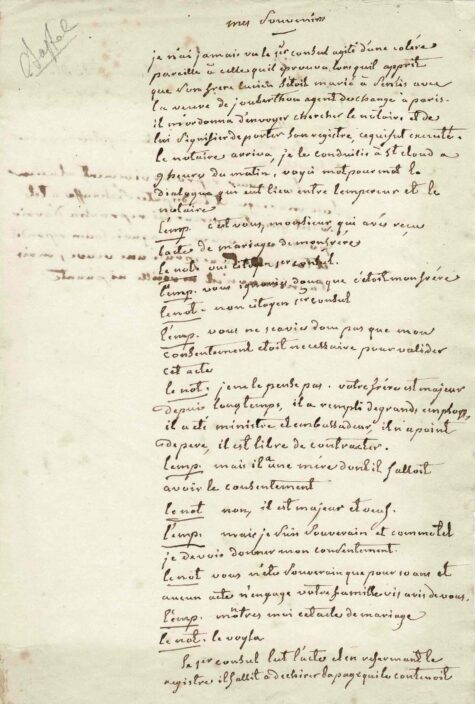 Chaptal
mes Souvenirs
je n'ai jamais vu le 1er consul agité d'une colère
pareille à celle qu'il éprouva, lorsqu'il apprit
que Son frère Lucien S'étoit marié à Senlis avec
la veuve de jouberthon agent de change à paris.
il m'ordonna d'envoyer chercher le notaire, et de
lui Signifier de porter Son registre, ce qui fut executé.
le notaire arriva, je le conduisis à St cloud a
9 heures du matin, voyà mot pour mot le
dialogue qui eut lieu entre l'empereur et le
notaire
l'emp. c'est vous, monsieur, qui avés reçu
l'acte de mariage de mon frère
le not. oui citoyen 1er consul.
l'emp. vous ignoriés donc que c'étoit mon frère
le not. non citoyen 1er consul
l'emp. vous ne scaviés donc pas que mon
consentement étoit necessaire pour valider
cet acte
le not. je ne le pense pas. votre frère est majeur
depuis longtemps, il a rempli de grands emplois,
il a été ministre et embassadeur, il n'a point
de pere, il est libre de contracter.
l'emp. mais il a une mère dont il falloit
avoir le consentement
le not non, il est majeur et veuf.
l'emp. mais je Suis Souverain et comme tel
je devois donner mon consentement.
le not vous n'etes Souverain que pour 10 ans et
aucun acte n'engage votre famille vis avis de vous.
l'emp. montres moi cet acte de mariage
le not. le voyla
Le 1er consul lut l'acte et en refermant le
registre il faillit a dechirer la page qui le contenoit